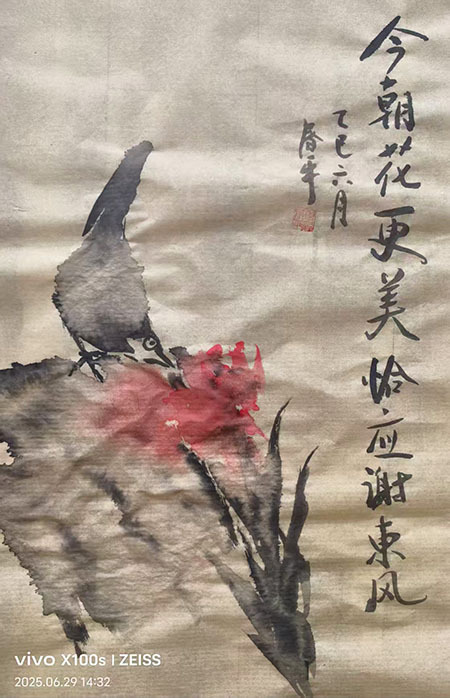 今朝花更美恰应谢东风
乙巳六月
春平
vivo X100s | ZEISS
2025.06.29 14:32